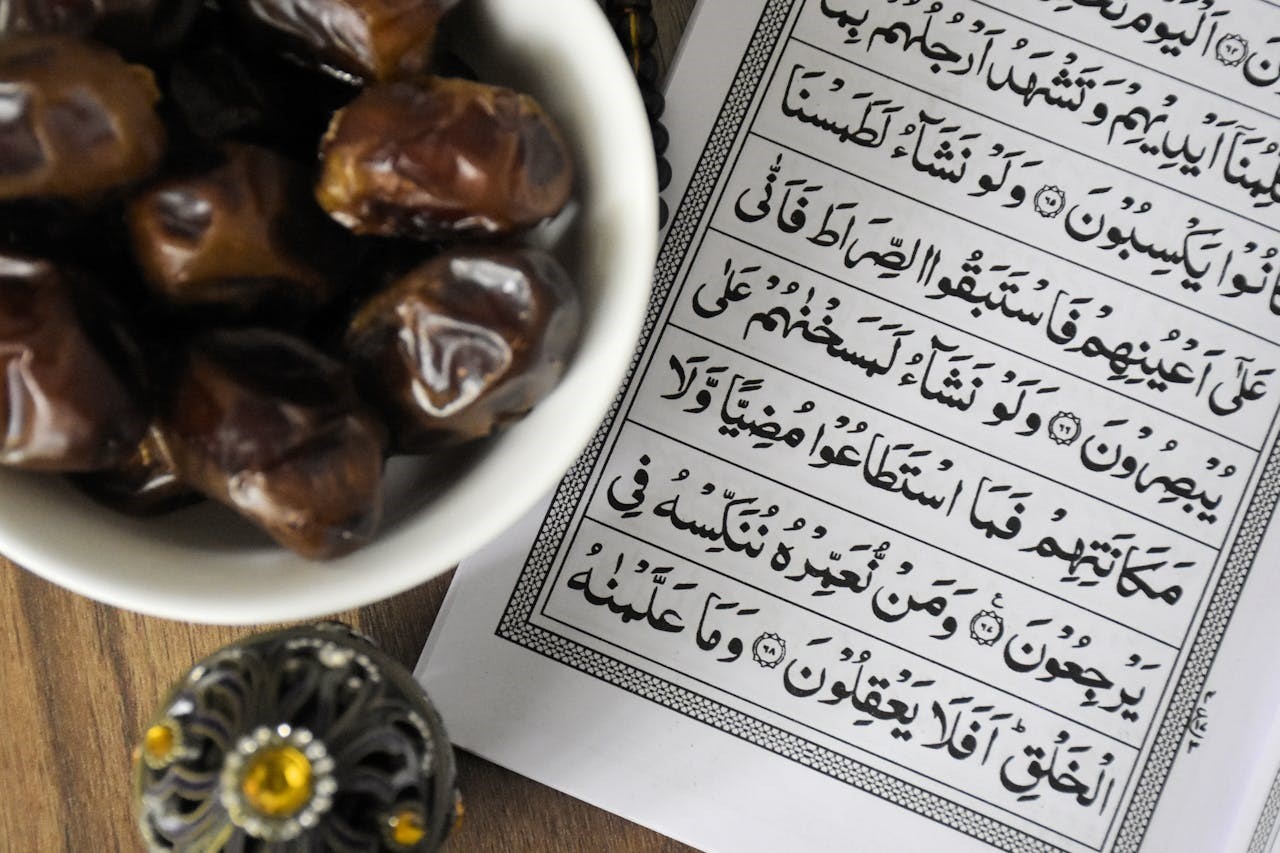 اَلْيَوْمَ
اَيْدِيْهِمْ وَتَشْهَدُ اَرْجُلُهُمْ بِمَا
ـانُوْا يَكْسِبُوْنَ ۝٦٥ وَلَوْ نَشَآءُ لَطَمَسْنَا
عَلٰٓى اَعْيُنِهِمْ فَاسْتَبَقُوا الصِّرَاطَ فَاَنّٰى
يُبْصِرُوْنَ ۝٦٦ وَلَوْ نَشَآءُ لَمَسَخْنٰهُمْ عَلٰى
مَكَانَتِهِمْ فَمَا اسْتَطَاعُوْا مُضِيًّا وَّلَا
يَرْجِعُوْنَ ۝٦٧ وَمَنْ نُّعَمِّرْهُ نُنَكِّسْهُ فِى
الْخَلْقِؕ اَفَلَا يَعْقِلُوْنَ ۝٦٨ وَمَا عَلَّمْنٰهُ